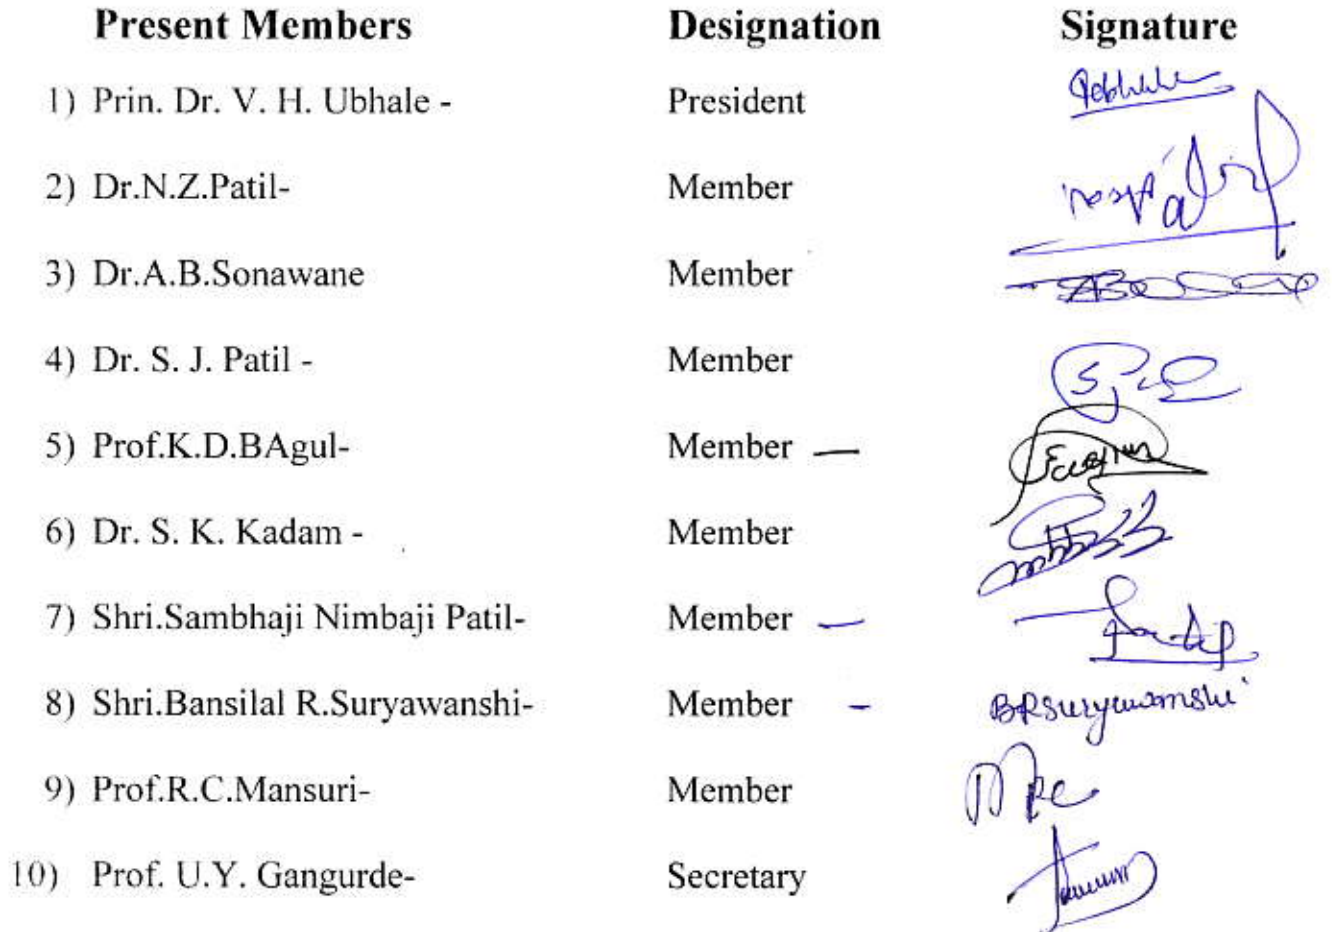 Present Members Designation Signature
1) Prin. Dr. V. H. Ubhale - President
2) Dr.N.Z.Patil- Member
3) Dr.A.B.Sonawane Member
4) Dr. S. J. Patil - Member
5) Prof.K.D.BAgul- Member —
6) Dr. S. K. Kadam - Member
7) Shri.Sambhaji Nimbaji Patil- Member —
8) Shri.Bansilal R.Suryawanshi- Member - BRSuryawanshi
9) Prof.R.C.Mansuri- Member
10) Prof. U.Y. Gangurde- Secretary